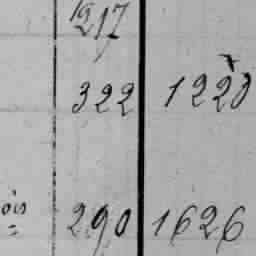 1217
322 1220
ois 290 1626